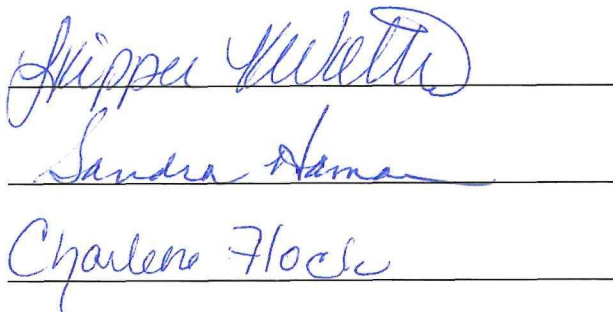 Skipper
Sandra Haman
Charlene Flock